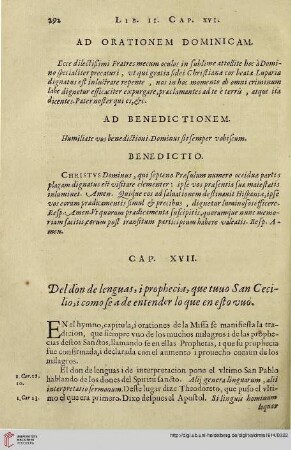 292 LIB. II. CAP. XVI.
AD ORATIONEM DOMINICAM.
Ecce dilectissimi Fratres mecum oculos in sublime attollite hoc à Domi-
no specialiter precaturi, vt qui gratia fidei Christiana cor beata Luparia
dignatus est inlustrare repente, nos in hoc momento ab omni criminum
labe dignetur efficaciter expurgare, proclamantes ad te è terris, atque ita
dicentes. Pater noster qui es, &c.
AD BENEDICTIONEM.
Humiliate vos benedictioni. Dominus sit semper vobiscum.
BENEDICTIO.
CHRISTVS Dominus, qui septeno Præsulum numero occidua partis
plagam dignatus est visitare clementer; ipse vos præsentis sua maiestatis
inlominet. Amen. Quique eos ad saluationem destinauit Hispania, ipse
vos eorum prædicamentis simul & precibus, dignetur luminosos efficere.
Resp. Amen. Vt quorum prædicamenta suscipitis, quorumque nunc memo-
riam facitis, eorum post transitum participium habere valeatis. Resp. A-
men.
CAP. XVII.
Del don de lenguas, i prophecia, que tuuo San Ceci-
lio, i como se a de entender lo que en esto vuo.
EN el hymno, capitula, i oraciones de la Missa se manifiesta la tra-
dicion, que siempre vuo de los muchos milagros i de las prophe-
cias destos Sanctos, llamando se en ellas. Prophetas, i que su prophecia
fue confirmada, i declarada con el aumento i prouecho comun de los
milagros.
El don de lenguas i de interpretacion pono el vltimo San Pablo
1. Cor. 12. hablando de los dones del Spiritu sancto. Alij genera linguarum, alij
10. interpretatio sermonum. Deste lugar dize Theodoreto, que puso el vlti-
1. Cor. 13. mo el que era primero. Dixo despues el Apostol. Si linguis hominum
loquar
http://digi.ub.uni-heidelberg.de/diglit/aldrete1614/0332